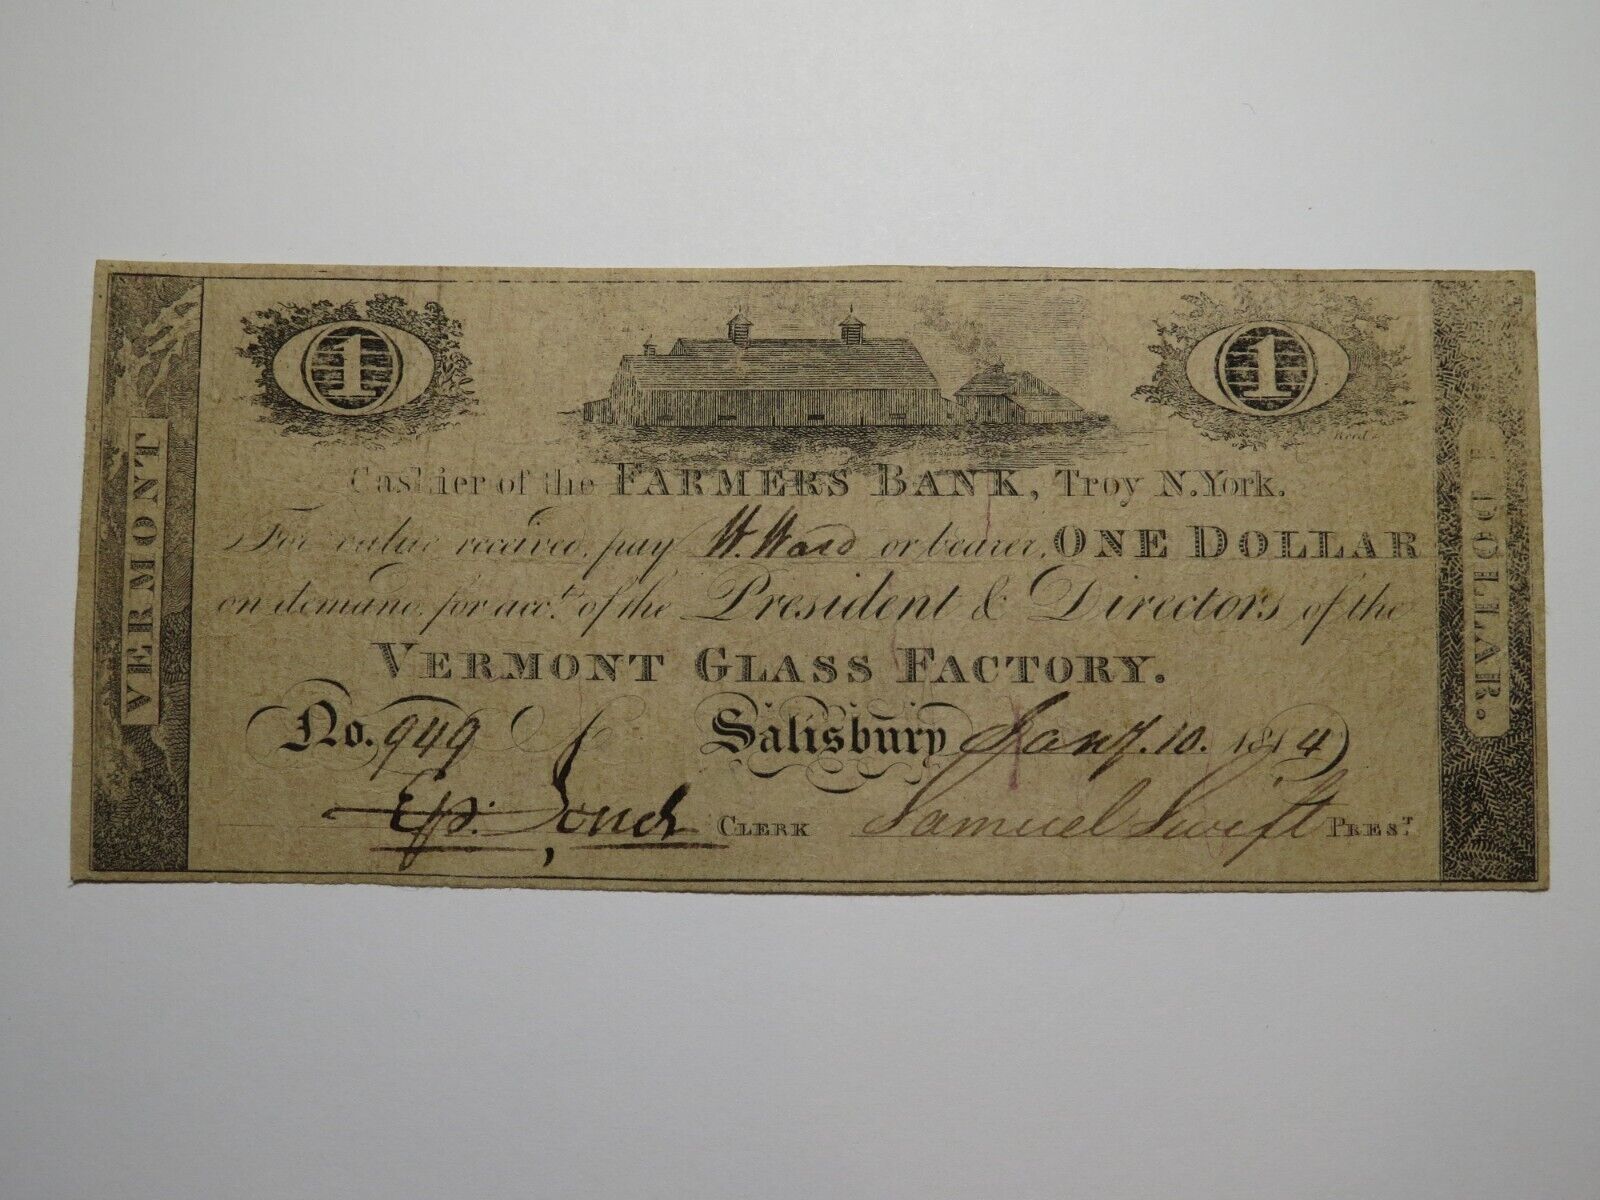 VERMONT
1
1
Reed
Cashier of the FARMERS BANK, Troy N.York.
For value received, pay W. Ward or bearer, ONE DOLLAR
on demand, for acct. of the President & Directors of the
VERMONT GLASS FACTORY.
No. 949 Salisbury Jany. 10. 1814
Ep. CLERK Samuel Swift PREST
DOLLAR.